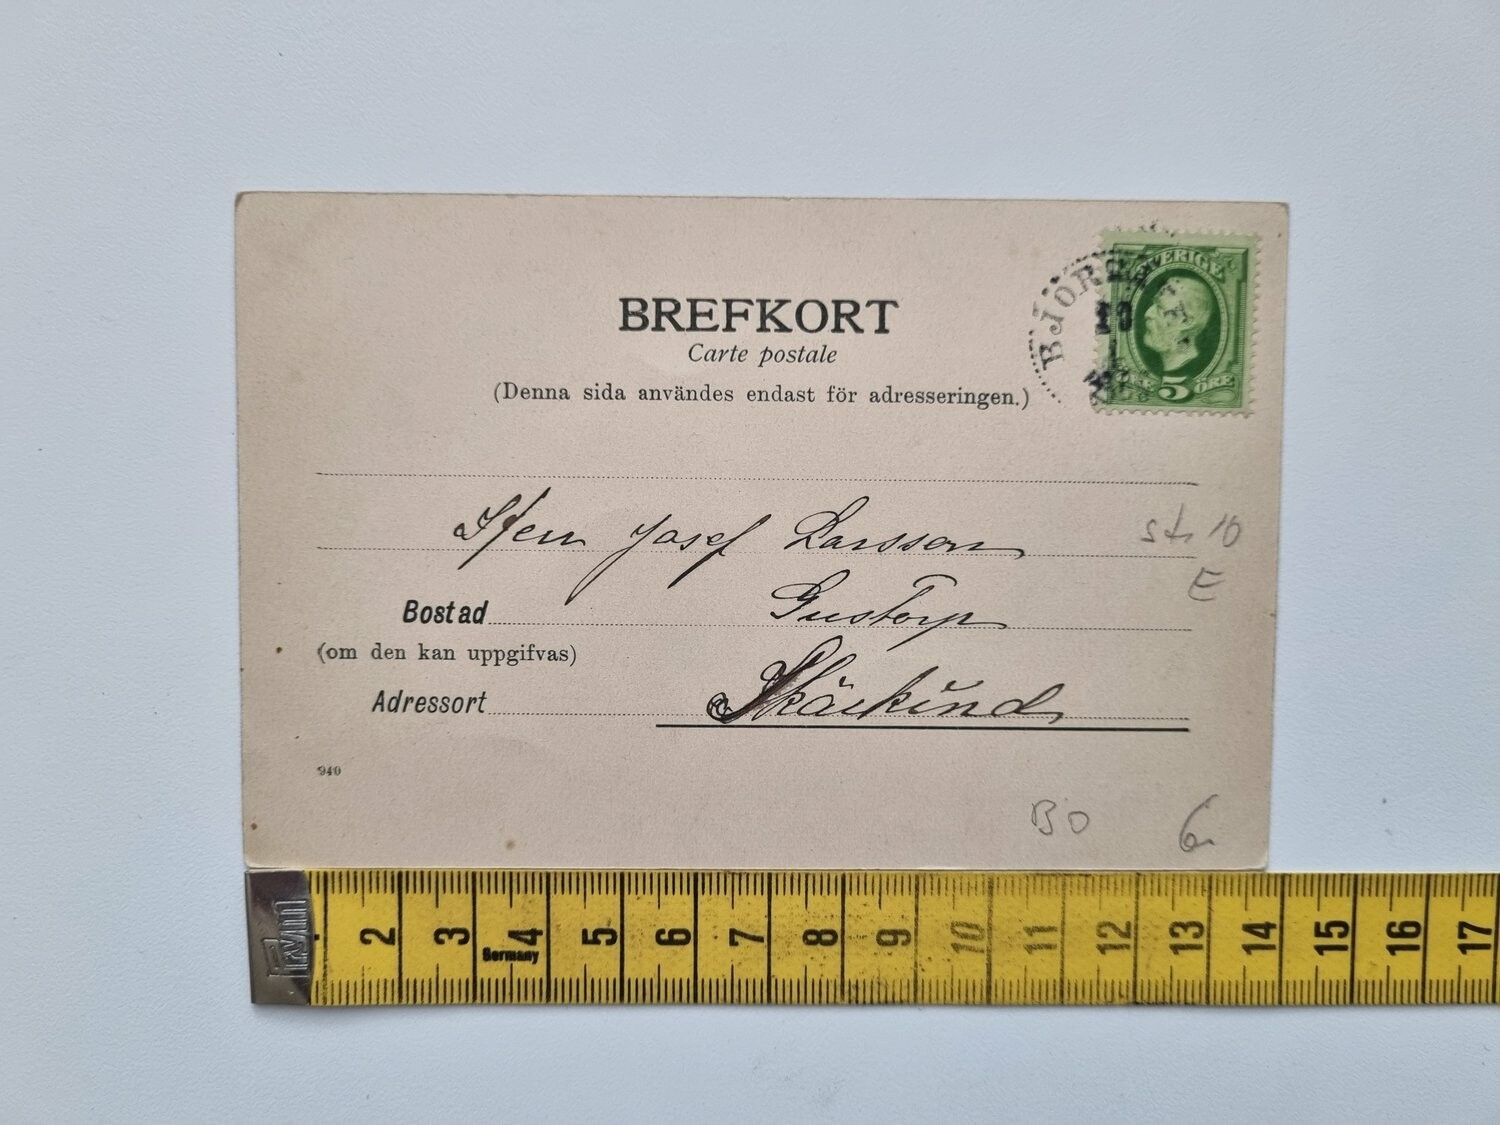 BREFKORT
Carte postale
(Denna sida användes endast för adresseringen.)
SVERIGE
5 ÖRE
10
Herr Josef Larsson
str 10
E
Bostad Gustorp
(om den kan uppgifvas)
Adressort Skärkind
940
BO
6
2 3 4 5 6 7 8 9 10 11 12 13 14 15 16 17
Germany